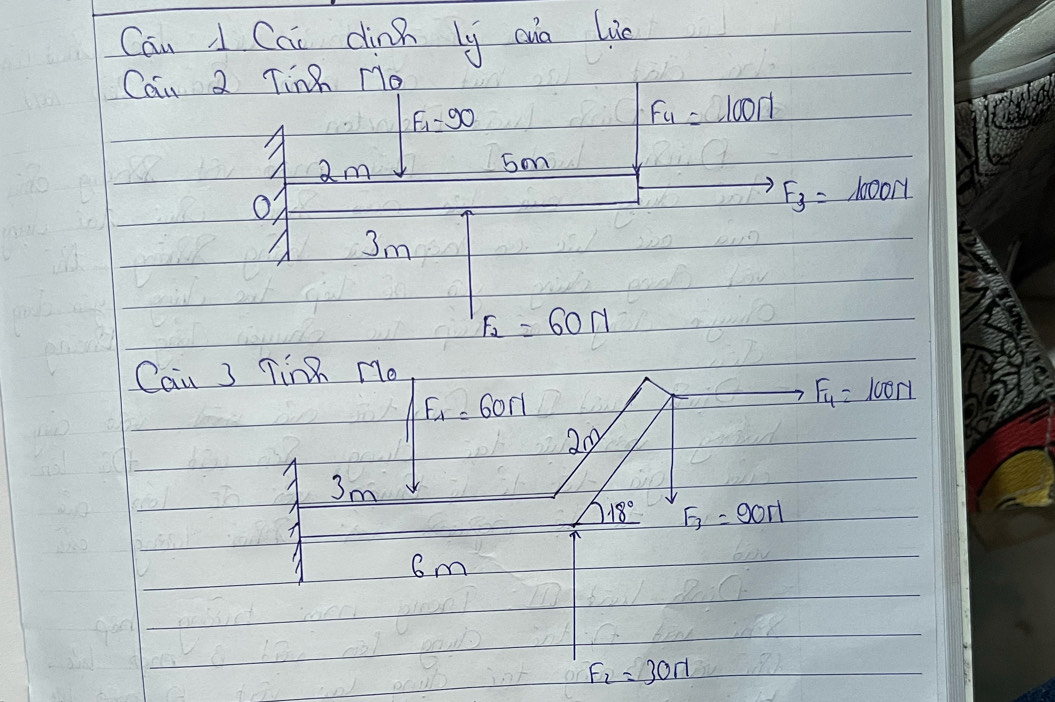 Câu 1 Các định lý của lực
Câu 2 Tính Mo
F1 = 90
F4 = 100N
2m
5m
O
F3 = 1000N
3m
F2 = 60N
Câu 3 Tính Mo
F1 = 60N
F4 = 100N
2m
3m
18°
F3 = 90N
6m
F2 = 30N